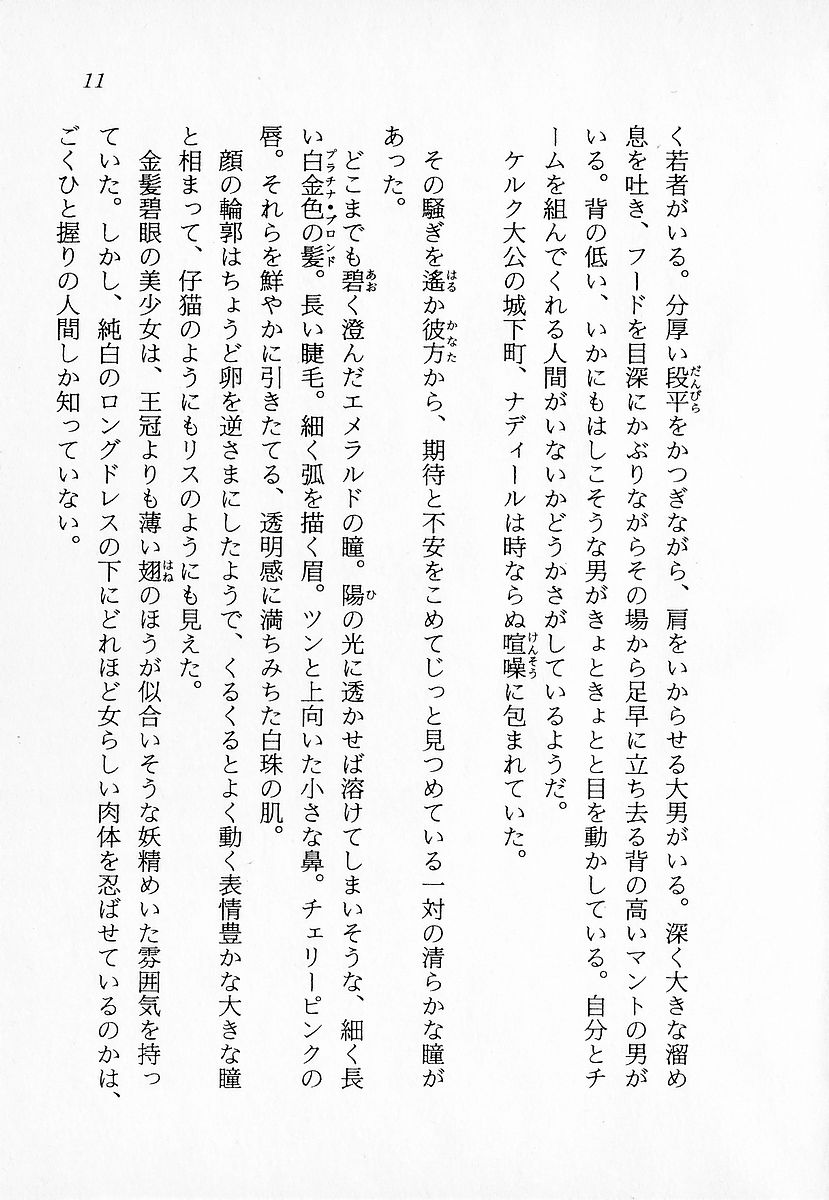 11
く若者がいる。分厚い段平をかつぎながら、肩をいからせる大男がいる。深く大きな溜め
息を吐き、フードを目深にかぶりながらその場から足早に立ち去る背の高いマントの男が
いる。背の低い、いかにもはしこそうな男がきょときょとと目を動かしている。自分とチ
ームを組んでくれる人間がいないかどうかさがしているようだ。
ケルク大公の城下町、ナディールは時ならぬ喧噪に包まれていた。
その騒ぎを遙か彼方から、期待と不安をこめてじっと見つめている一対の清らかな瞳が
あった。
どこまでも碧く澄んだエメラルドの瞳。陽の光に透かせば溶けてしまいそうな、細く長
い白金色の髪。長い睫毛。細く弧を描く眉。ツンと上向いた小さな鼻。チェリーピンクの
唇。それらを鮮やかに引きたてる、透明感に満ちみちた白珠の肌。
顔の輪郭はちょうど卵を逆さまにしたようで、くるくるとよく動く表情豊かな大きな瞳
と相まって、仔猫のようにもリスのようにも見えた。
金髪碧眼の美少女は、王冠よりも薄い翅のほうが似合いそうな妖精めいた雰囲気を持っ
ていた。しかし、純白のロングドレスの下にどれほど女らしい肉体を忍ばせているのかは、
ごくひと握りの人間しか知っていない。